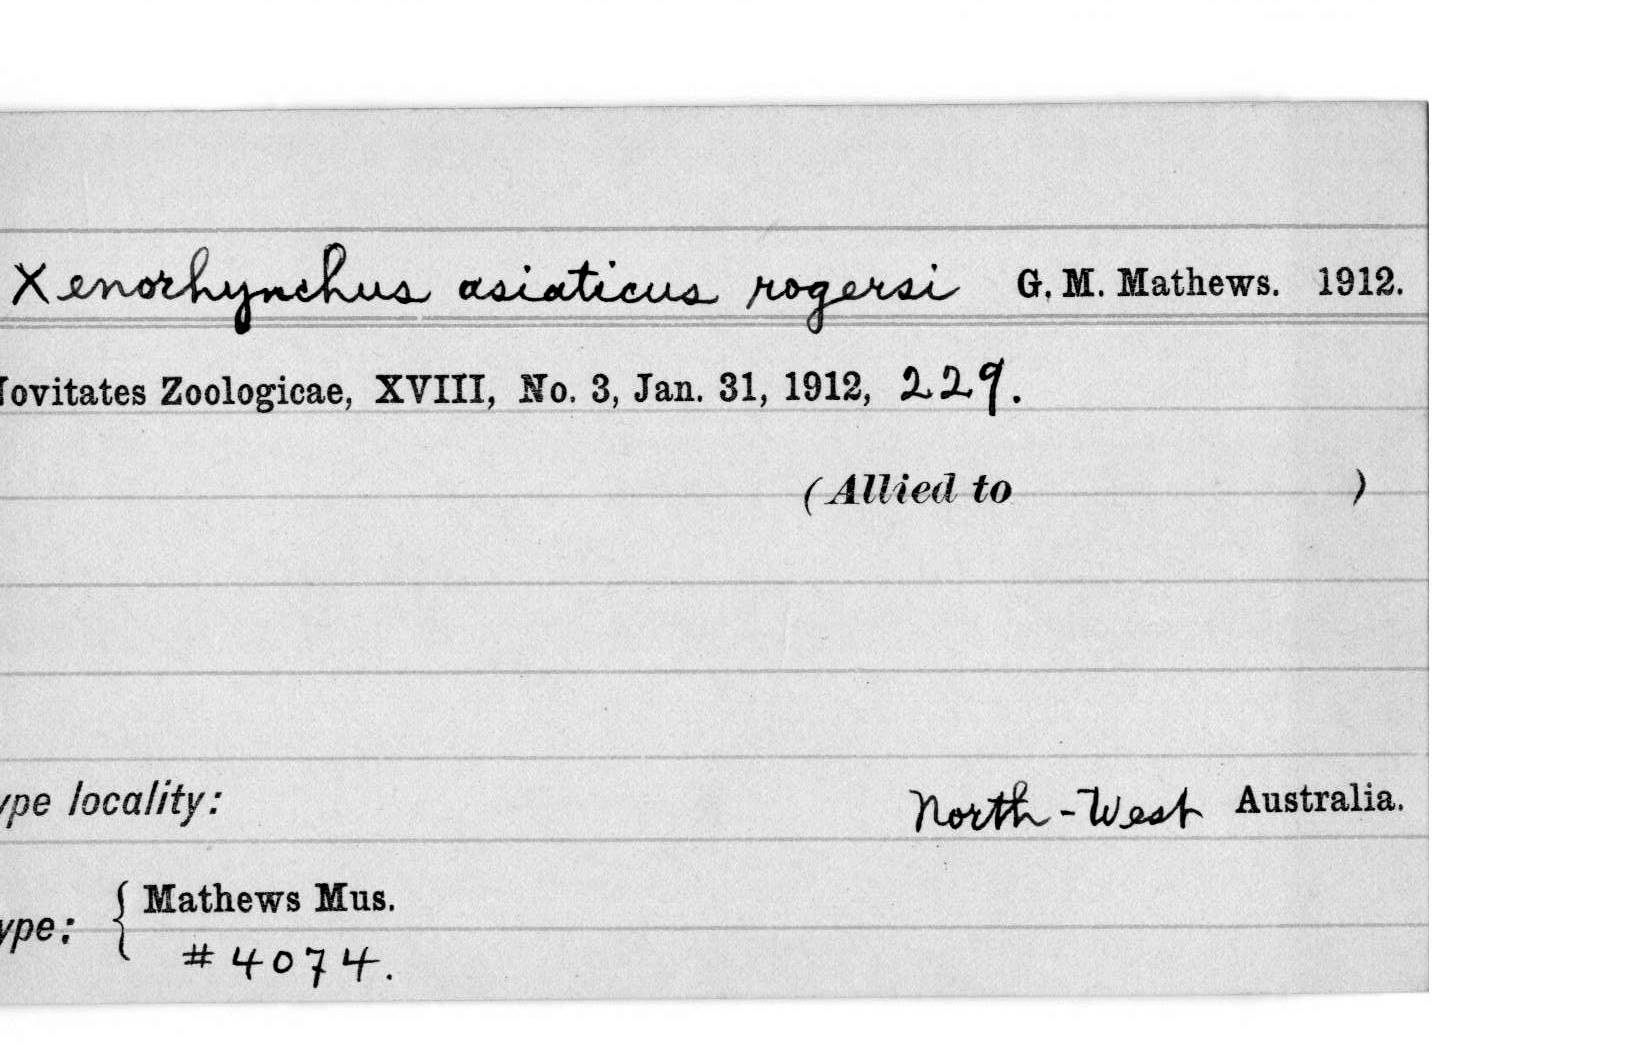 Xenorhynchus asiaticus rogersi G. M. Mathews. 1912.
ovitates Zoologicae, XVIII, No. 3, Jan. 31, 1912, 229.
(Allied to )
ype locality: North-West Australia.
ype: { Mathews Mus.
#4074.